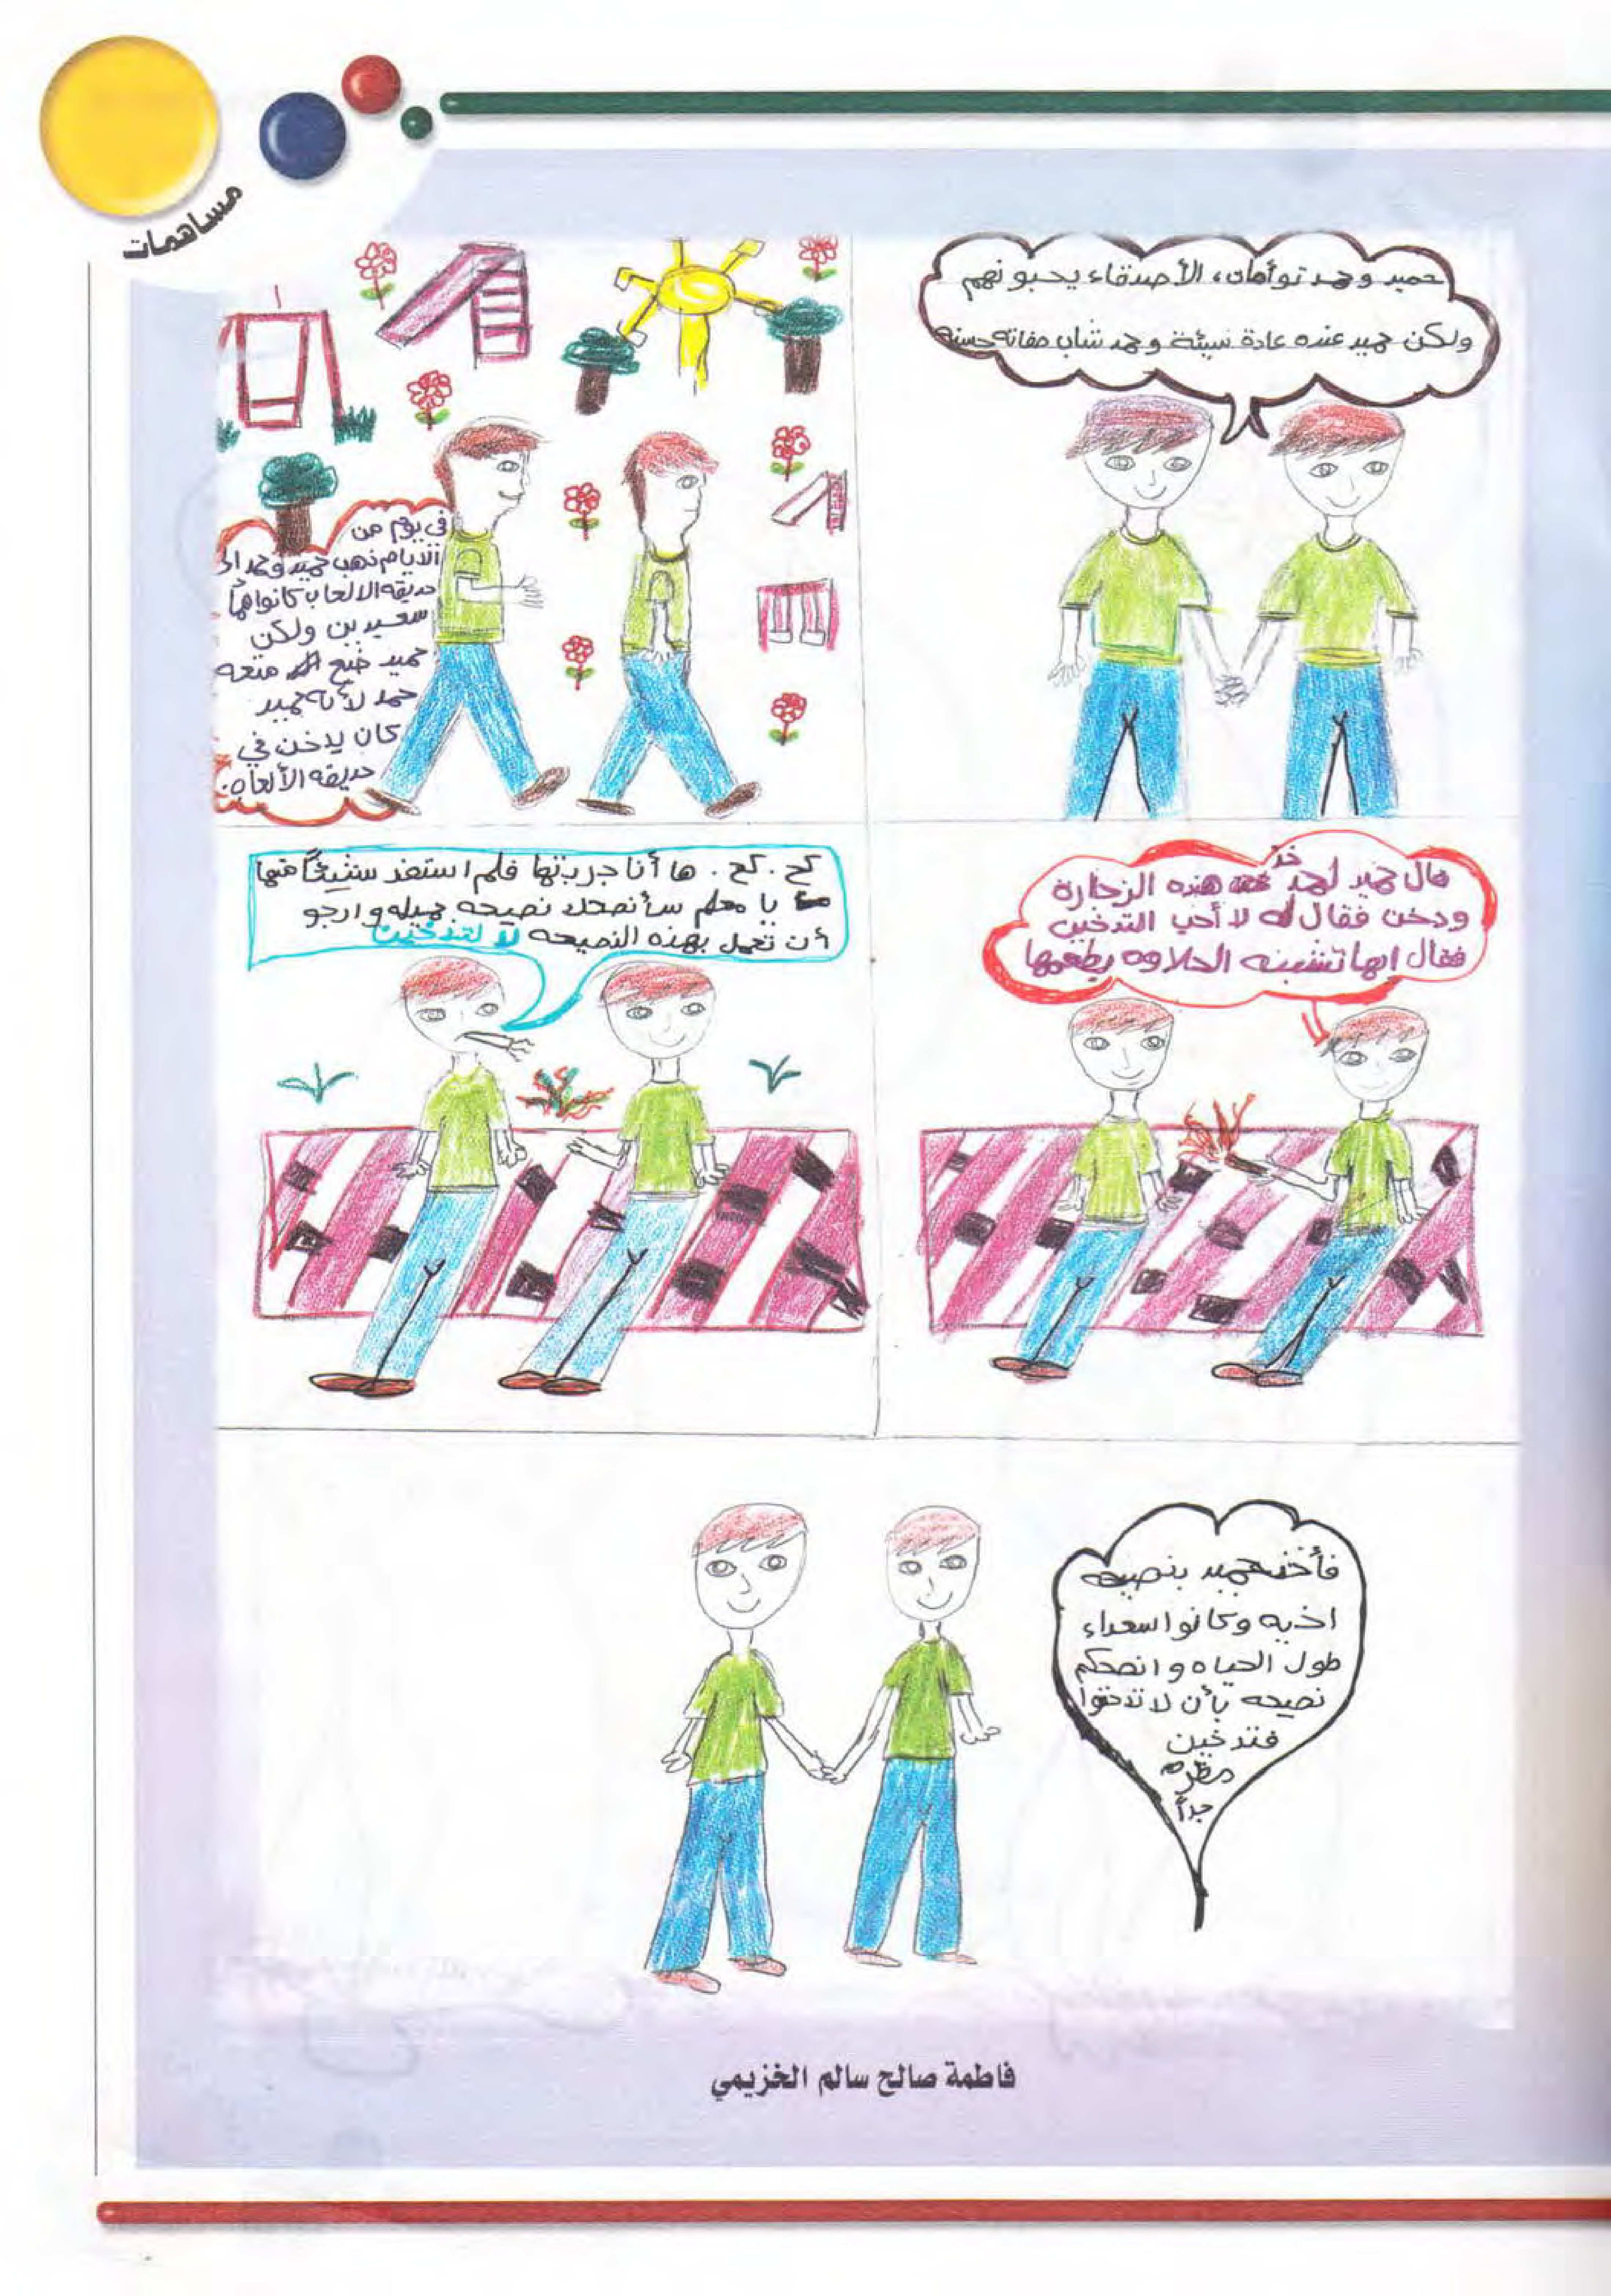 مساهمات
حميد وحمد توأمان، الأصدقاء يحبونهم
ولكن حميد عنده عادة سيئة وحمد شاب صفاته حسنه
في يوم من
الايام ذهب حميد وحمد
حديقه الالعاب كانوا
سعيدين ولكن
حميد ضيع متعه
حمد لأنه حميد
كان يدخن في
حديقه الألعاب.
قال حميد لحمد خذ هذه الزجارة
ودخن فقال له لا أحب التدخين
فقال انها تشبه الحلاوه بطعمها
كح. كح. ها أنا جربتها فلم استفد شيئاً منها
يا سأنصحك نصيحه جميله وارجو
أن تعمل بهذه النصيحه لا لتدخين
فأخذ حميد بنصيحه
اخيه وكانوا سعداء
طول الحياه وانصحكم
نصيحه بأن لا تدخنوا
فتدخين
مظره
جداً
فاطمة صالح سالم الخزيمي